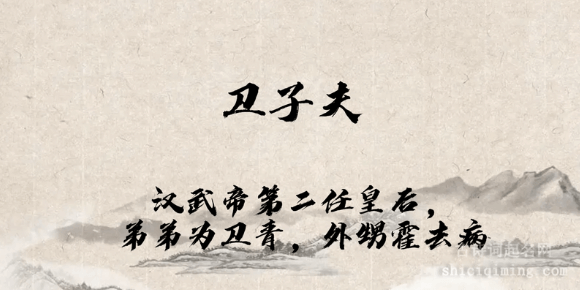 卫子夫
汉武帝第二任皇后，
弟弟为卫青，外甥霍去病
诗词起名网
shiciqiming.com